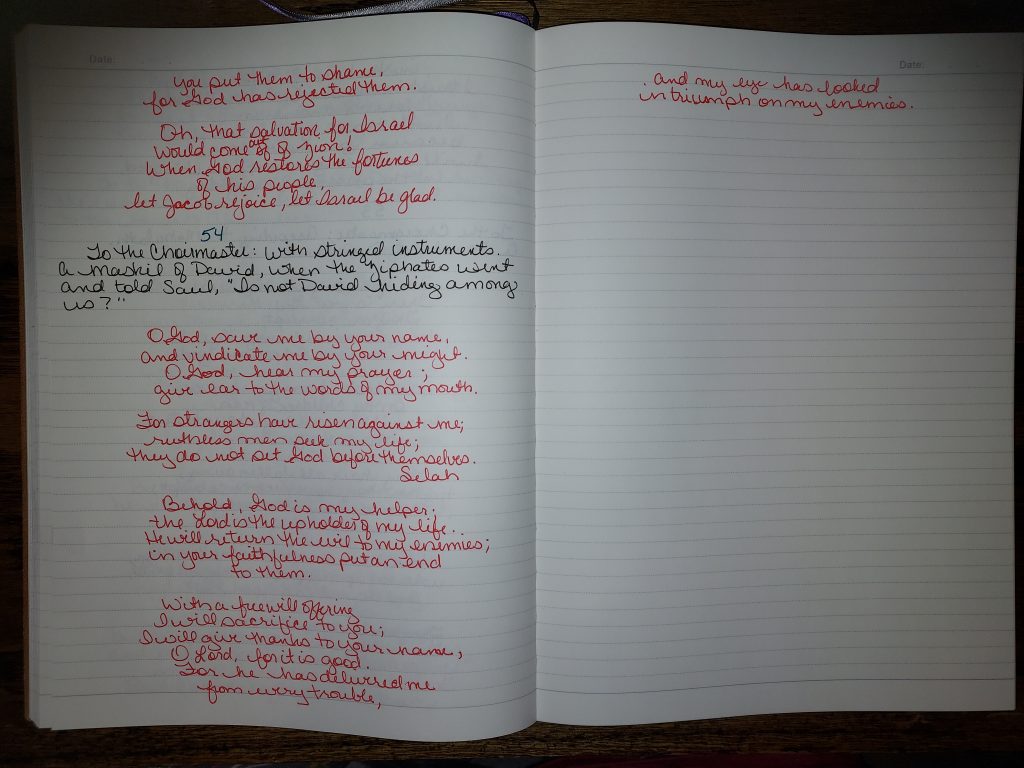 Date:
you put them to shame,
for God has rejected them.
Oh, that salvation for Israel
would come out of Zion!
When God restores the fortunes
of his people,
let Jacob rejoice, let Israel be glad.
54
To the Choirmaster: with stringed instruments.
A Maskil of David, when the Ziphates went
and told Saul, "Is not David hiding among
us?"
O God, save me by your name,
and vindicate me by your might.
O God, hear my prayer;
give ear to the words of my mouth.
For strangers have risen against me;
ruthless men seek my life;
they do not set God before themselves.
Selah
Behold, God is my helper;
the Lord is the upholder of my life.
He will return the evil to my enemies;
in your faithfulness put an end
to them.
With a freewill offering
I will sacrifice to you;
I will give thanks to your name,
O Lord, for it is good.
For he has delivered me
from every trouble,
Date:
and my eye has looked
in triumph on my enemies.